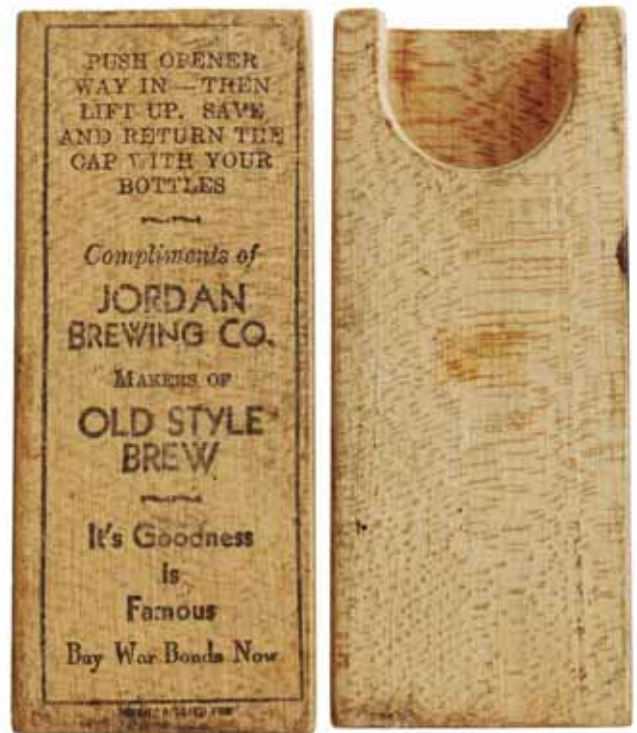 PUSH OPENER
WAY IN — THEN
LIFT UP. SAVE
AND RETURN THE
CAP WITH YOUR
BOTTLES
Compliments of
JORDAN
BREWING CO.
MAKERS OF
OLD STYLE
BREW
It's Goodness
is
Famous
Buy War Bonds Now